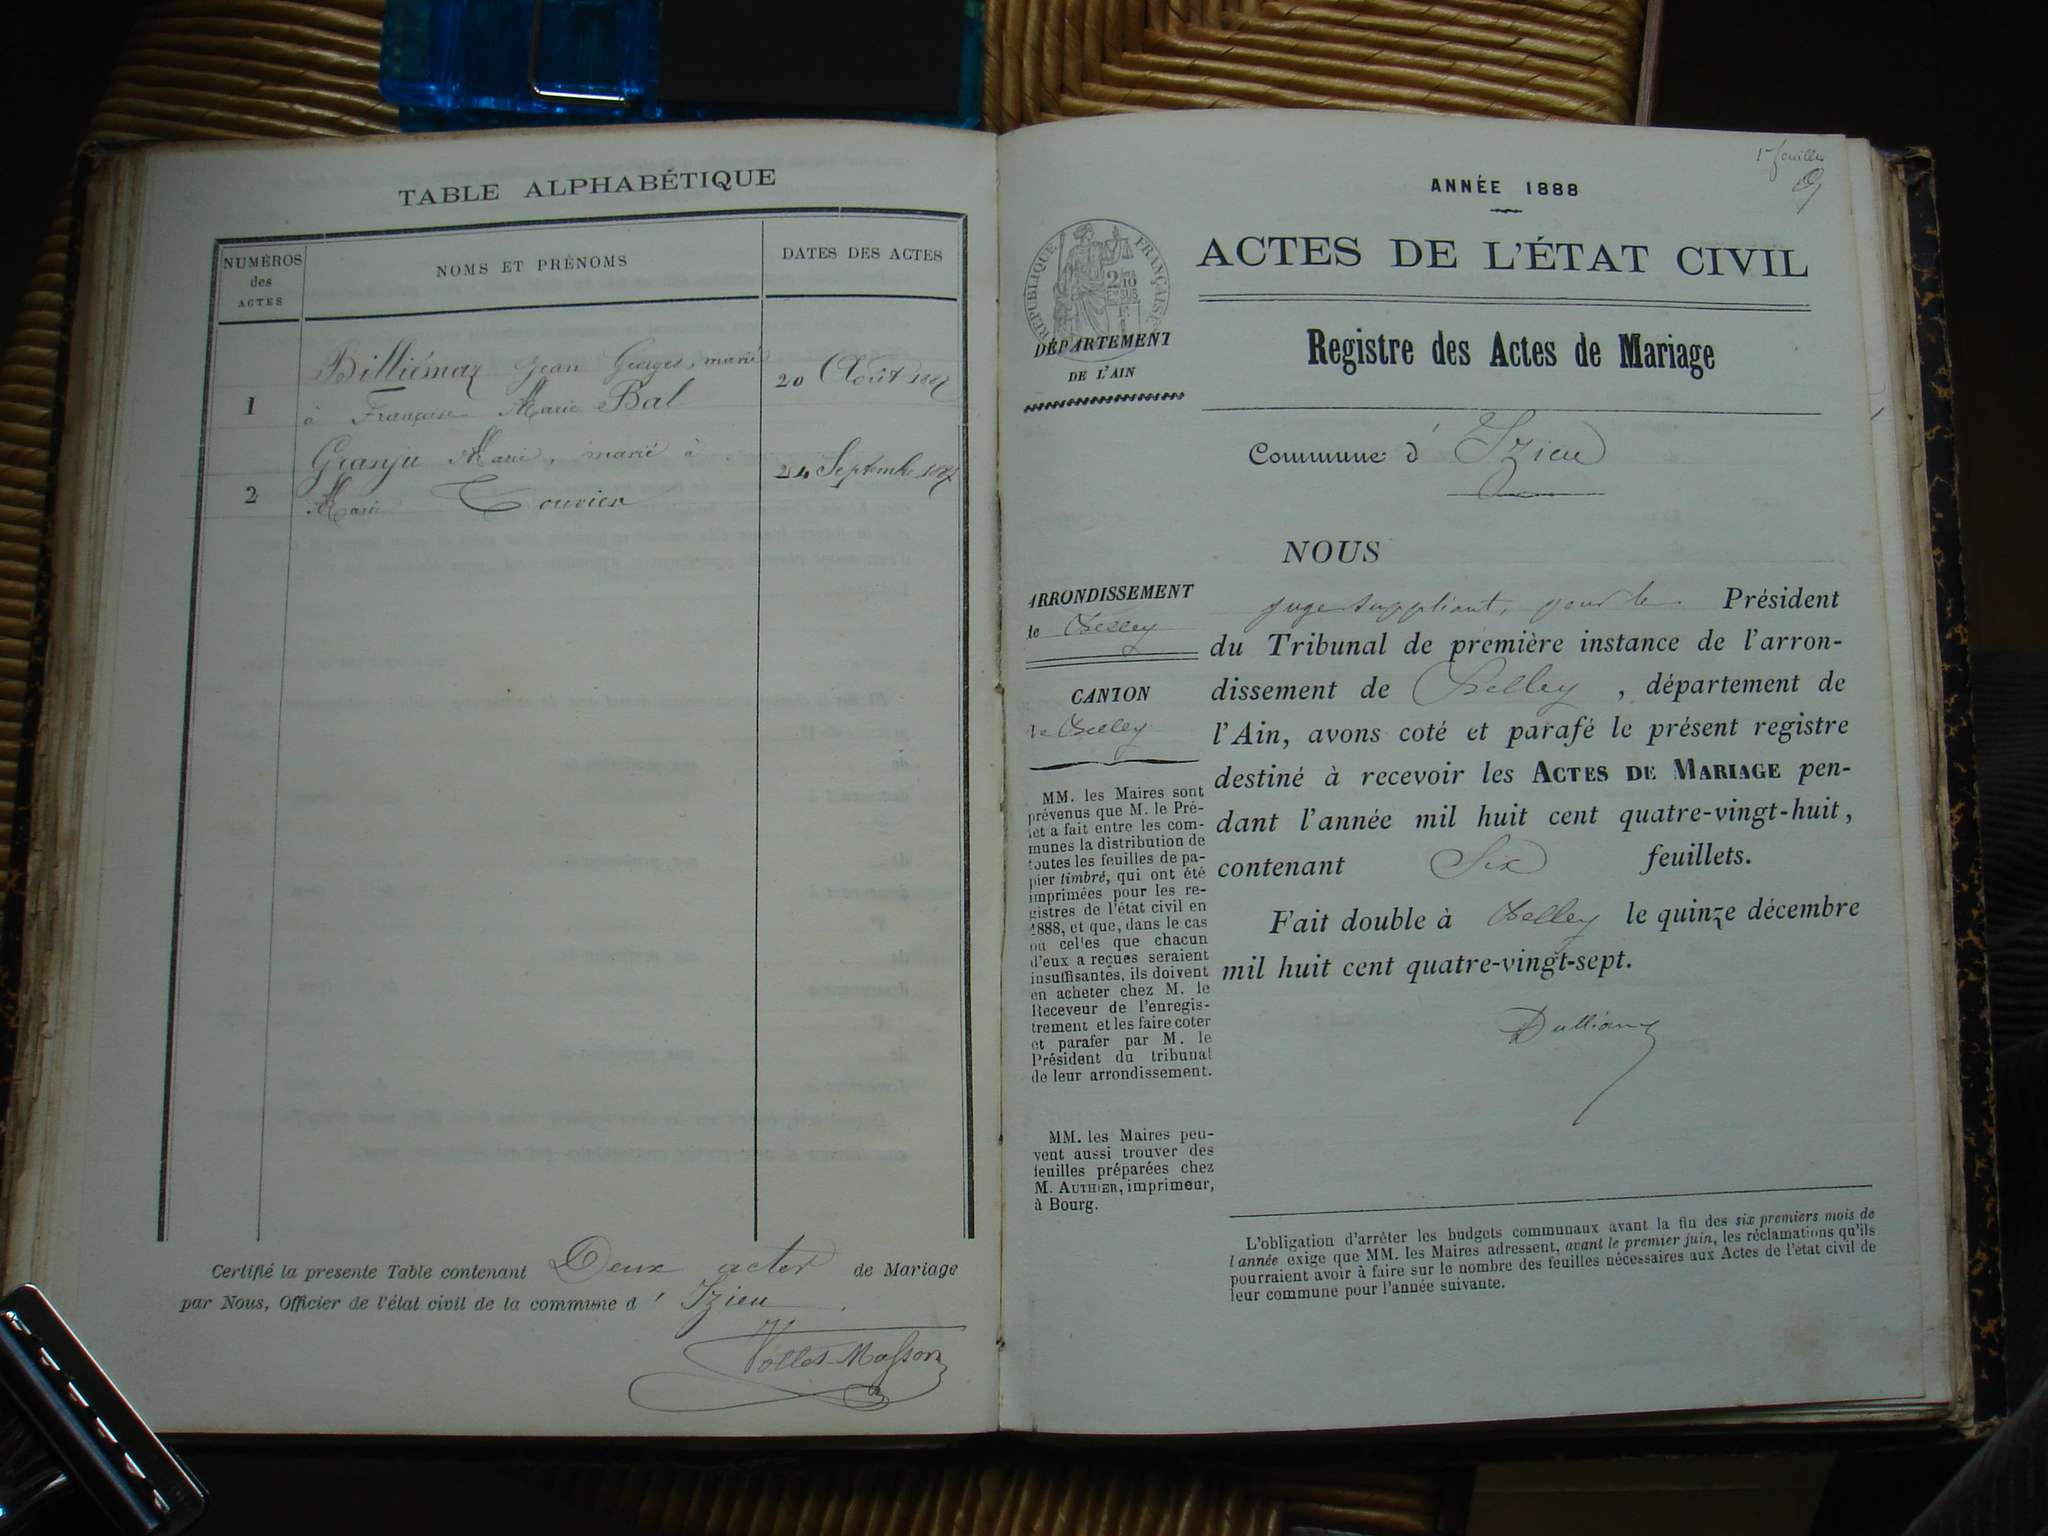 TABLE ALPHABÉTIQUE
NUMÉROS
des
ACTES
NOMS ET PRÉNOMS
DATES DES ACTES
1
Billiémaz Jean Georges, marié
à Françoise Marie Bal
20 Août 1887
2
Granju Marie, marié à
Marie Touvier
24 Septembre 1887
Certifié la présente Table contenant Deux actes de Mariage
par Nous, Officier de l'état civil de la commune d' Izieu
1r feuillet
ANNÉE 1888
ACTES DE L'ÉTAT CIVIL
RÉPUBLIQUE FRANÇAISE
2/10
DÉPARTEMENT
DE L'AIN
Registre des Actes de Mariage
Commune d' Izieu
NOUS
ARRONDISSEMENT
de Belley
CANTON
de Belley
MM. les Maires sont
prévenus que M. le Pré-
fet a fait entre les com-
munes la distribution de
toutes les feuilles de pa-
pier timbré, qui ont été
imprimées pour les re-
gistres de l'état civil en
1888, et que, dans le cas
où celles que chacun
d'eux a reçues seraient
insuffisantes, ils doivent
en acheter chez M. le
Receveur de l'enregis-
trement et les faire coter
et parafer par M. le
Président du tribunal
de leur arrondissement.
MM. les Maires peu-
vent aussi trouver des
feuilles préparées chez
M. AUTHIER, imprimeur,
à Bourg.
juge suppléant, pour le Président
du Tribunal de première instance de l'arron-
dissement de Belley, département de
l'Ain, avons coté et parafé le présent registre
destiné à recevoir les ACTES DE MARIAGE pen-
dant l'année mil huit cent quatre-vingt-huit,
contenant Six feuillets.
Fait double à Belley le quinze décembre
mil huit cent quatre-vingt-sept.
L'obligation d'arrêter les budgets communaux avant la fin des six premiers mois de
l'année exige que MM. les Maires adressent, avant le premier juin, les réclamations qu'ils
pourraient avoir à faire sur le nombre des feuilles nécessaires aux Actes de l'état civil de
leur commune pour l'année suivante.